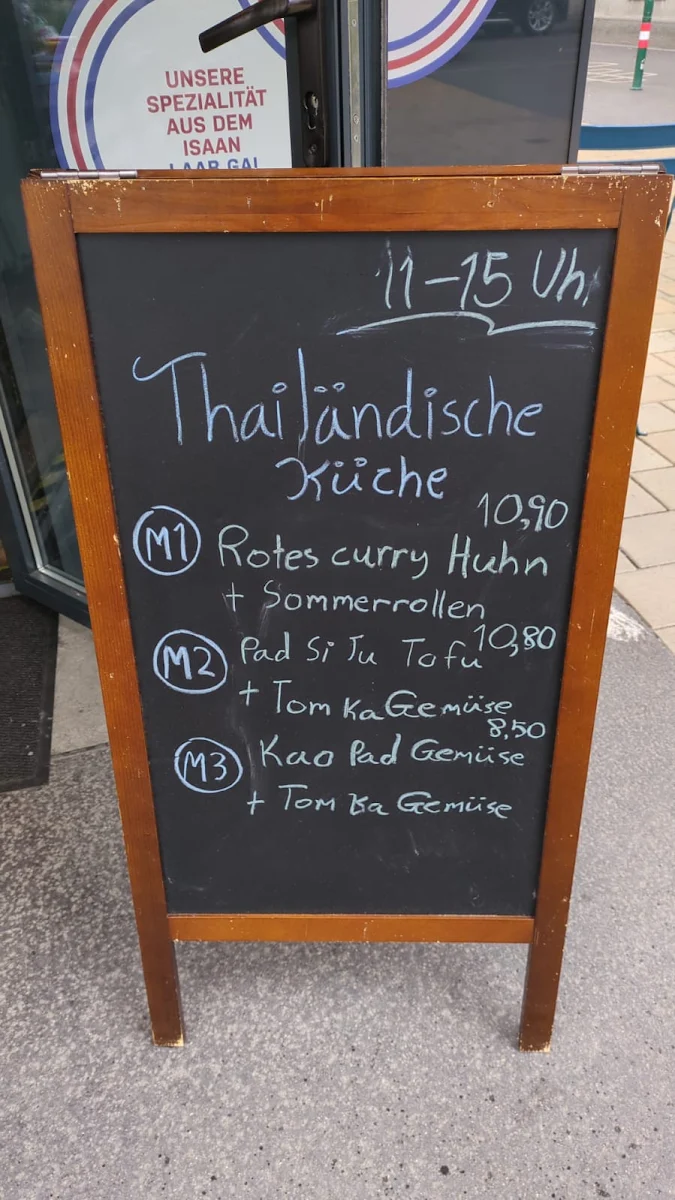 UNSERE
SPEZIALITÄT
AUS DEM
ISAAN
LAAB GAI
11-15 Uhr
Thailändische
Küche
10,90
M1 Rotes curry Huhn
+ Sommerrollen
10,80
M2 Pad Si Ju Tofu
+ Tom Ka Gemüise
8,50
M3 Kao Pad Gemüise
+ Tom Ka Gemüise